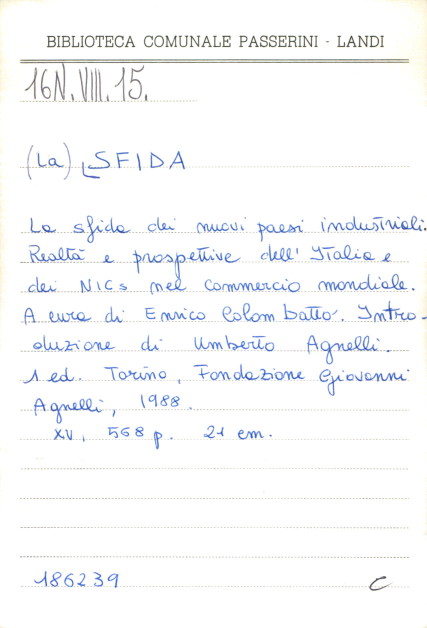 BIBLIOTECA COMUNALE PASSERINI - LANDI
16N.VIII.15.
(La) SFIDA
La sfida dei nuovi paesi industriali.
Realtà e prospettive dell'Italia e
dei NICs nel commercio mondiale.
A cura di Enrico Colombatto. Intro-
duzione di Umberto Agnelli.
1 ed. Torino, Fondazione Giovanni
Agnelli, 1988.
XV, 568 p. 21 cm.
186239
C